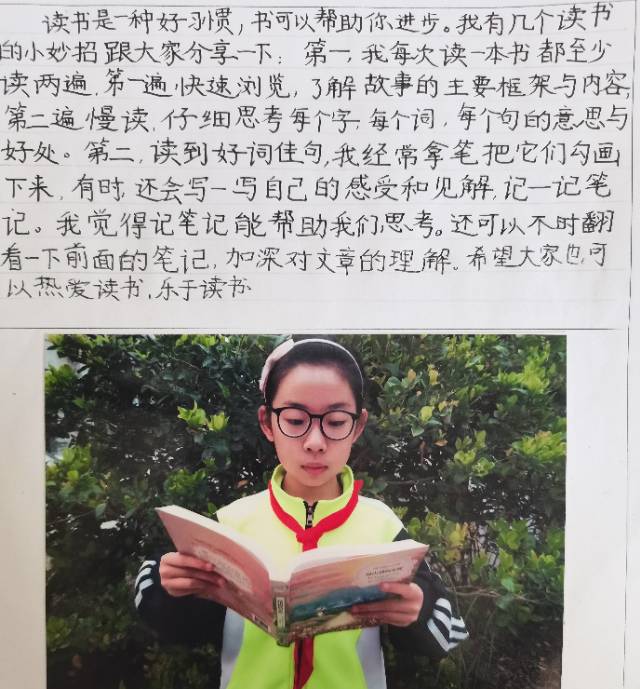 读书是一种好习惯，书可以帮助你进步。我有几个读书
的小妙招跟大家分享一下：第一，我每次读一本书都至少
读两遍，第一遍快速浏览，了解故事的主要框架与内容，
第二遍慢读，仔细思考每个字，每个词，每个句的意思与
好处。第二，读到好词佳句，我经常拿笔把它们勾画
下来，有时，还会写一写自己的感受和见解，记一记笔
记。我觉得记笔记能帮助我们思考。还可以不时翻
看一下前面的笔记，加深对文章的理解。希望大家也可
以热爱读书，乐于读书